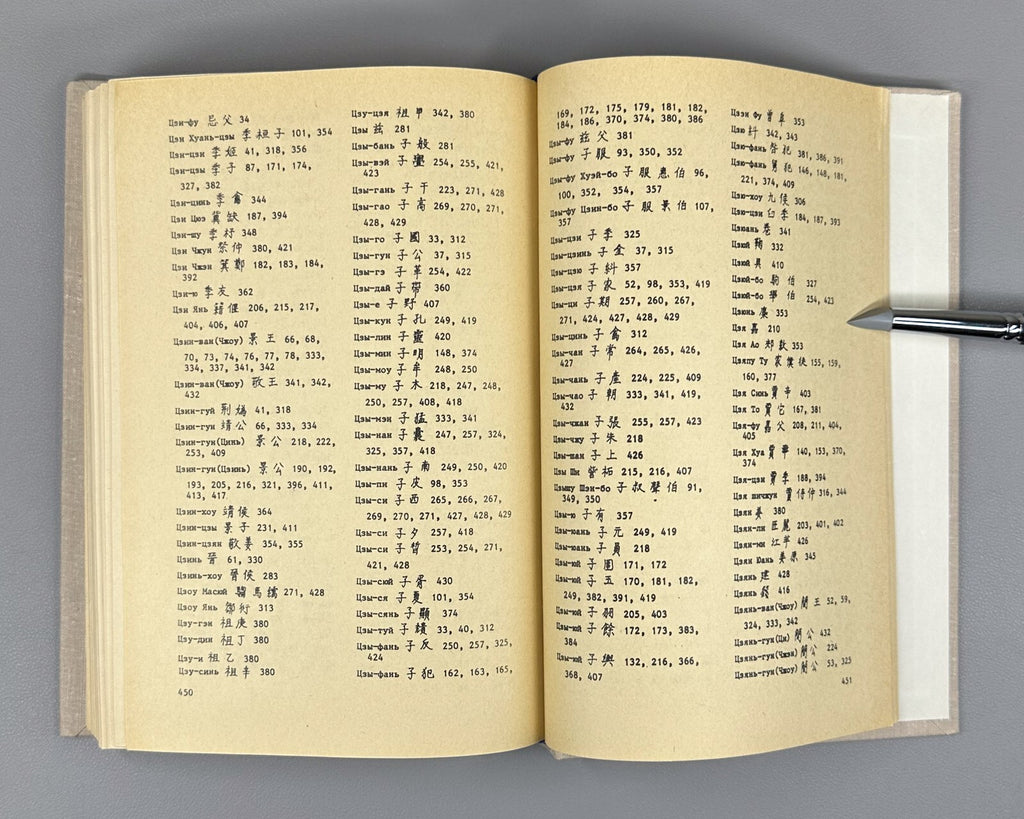 Цзи-фу 忌父 34
Цзи Хуань-цзы 季桓子 101, 354
Цзи-цзи 季姬 41, 318, 356
Цзи-цзы 季子 87, 171, 174,
327, 382
Цзи-цинь 季禽 344
Цзи Цюэ 冀缺 187, 394
Цзи-шу 季杼 348
Цзи Чжун 祭仲 380, 421
Цзи Чжэн 冀鄭 182, 183, 184,
392
Цзи-ю 季友 362
Цзи Янь 籍偃 206, 215, 217,
404, 406, 407
Цзин-ван(Чжоу) 景王 66, 68,
70, 73, 74, 76, 77, 78, 333,
334, 337, 341, 342
Цзин-ван(Чжоу) 敬王 341, 342,
432
Цзин-гуй 荆媯 41, 318
Цзин-гун 靖公 66, 333, 334
Цзин-гун(Цинь) 景公 218, 222,
253, 409
Цзин-гун(Цзинь) 景公 190, 192,
193, 205, 216, 321, 396, 411,
413, 417
Цзин-хоу 靖侯 364
Цзин-цзы 景子 231, 411
Цзин-цзян 敬姜 354, 355
Цзинь 晉 61, 330
Цзинь-хоу 晉侯 283
Цзоу Масюй 騶馬繻 271, 428
Цзоу Янь 鄒衍 313
Цзу-гэн 祖庚 380
Цзу-дин 祖丁 380
Цзу-и 祖乙 380
Цзу-синь 祖辛 380
450
Цзу-цзя 祖甲 342, 380
Цзы 茲 281
Цзы-бань 子般 281
Цзы-вэй 254, 255, 421,
423
Цзы-гань 子干 223, 271, 428
Цзы-гао 子高 269, 270, 271,
428, 429
Цзы-го 子國 33, 312
Цзы-гун 子公 37, 315
Цзы-гэ 子革 254, 422
Цзы-дай 子帶 360
Цзы-е 子野 407
Цзы-кун 子孔 249, 419
Цзы-лин 子靈 420
Цзы-мин 子明 148, 374
Цзы-моу 子牟 248, 250
Цзы-му 子木 218, 247, 248,
250, 257, 408, 418
Цзы-мэн 子猛 333, 341
Цзы-нан 子囊 247, 257, 324,
325, 357, 418
Цзы-нань 子南 249, 250, 420
Цзы-пи 子皮 98, 353
Цзы-си 子西 265, 266, 267,
269, 270, 271, 427, 428, 429
Цзы-си 子夕 257, 418
Цзы-си 子晳 253, 254, 271,
421, 428
Цзы-сюй 子胥 430
Цзы-ся 子夏 101, 354
Цзы-сянь 子顯 374
Цзы-туй 子頹 33, 40, 312
Цзы-фань 子反 250, 257, 325,
424
Цзы-фань 子犯 162, 163, 165,
169, 172, 175, 179, 181, 182,
184, 186, 370, 374, 380, 386
Цзы-фу 茲父 381
Цзы-фу 子服 93, 350, 352
Цзы-фу Хуэй-бо 子服惠伯 96,
100, 352, 354, 357
Цзы-фу Цзин-бо 子服景伯 107,
357
Цзы-цзи 子季 325
Цзы-цзинь 子金 37, 315
Цзы-цзю 子糾 357
Цзы-цзя 子家 52, 98, 353, 419
Цзы-ци 子期 257, 260, 267,
271, 424, 427, 428, 429
Цзы-цинь 子禽 312
Цзы-чан 子常 264, 265, 426,
427
Цзы-чань 子產 224, 225, 409
Цзы-чао 子朝 333, 341, 419,
432
Цзы-чжан 子張 255, 257, 423
Цзы-чжу 子朱 218
Цзы-шан 子上 426
Цзы Ши 訾祏 215, 216, 407
Цзышу Шэн-бо 子叔聲伯 91,
349, 350
Цзы-ю 子有 357
Цзы-юань 子元 249, 419
Цзы-юань 子員 218
Цзы-юй 子圉 171, 172
Цзы-юй 子玉 170, 181, 182,
249, 382, 391, 419
Цзы-юй 子羽 205, 403
Цзы-юй 子餘 172, 173, 383,
384
Цзы-юй 子輿 132, 216, 366,
368, 407
Цзэн Фу 353
Цзю 糾 342, 343
Цзю-фань 咎犯 381, 386, 391
Цзю-фань 舅犯 146, 148, 181,
221, 374, 409
Цзю-хоу 九侯 306
Цзю-цзи 臼季 184, 187, 393
Цзюань 卷 341
Цзюй 鞠 332
Цзюй 具 410
Цзюй-бо 駒伯 327
Цзюй-бо 伯 254, 423
Цзюнь 麇 353
Цзя 嘉 210
Цзя Ао 郟敖 353
Цзяпу Ту 家僕徒 155, 159,
160, 377
Цзя Синь 賈辛 403
Цзя То 賈佗 167, 381
Цзя-фу 嘉父 208, 211, 404,
405
Цзя Хуа 賈華 140, 153, 370,
374
Цзя-цзи 賈季 188, 394
Цзя шичжун 賈侍仲 316, 344
Цзян 姜 380
Цзян-ли 匠麗 203, 401, 402
Цзян-ми 江羋 426
Цзян Юань 姜原 345
Цзянь 建 428
Цзянь 416
Цзянь-ван(Чжоу) 簡王 52, 59,
324, 333, 342
Цзянь-гун(Ци) 簡公 432
Цзянь-гун(Чжэн) 簡公 224
Цзянь-гун(Чжоу) 簡公 53, 325
451